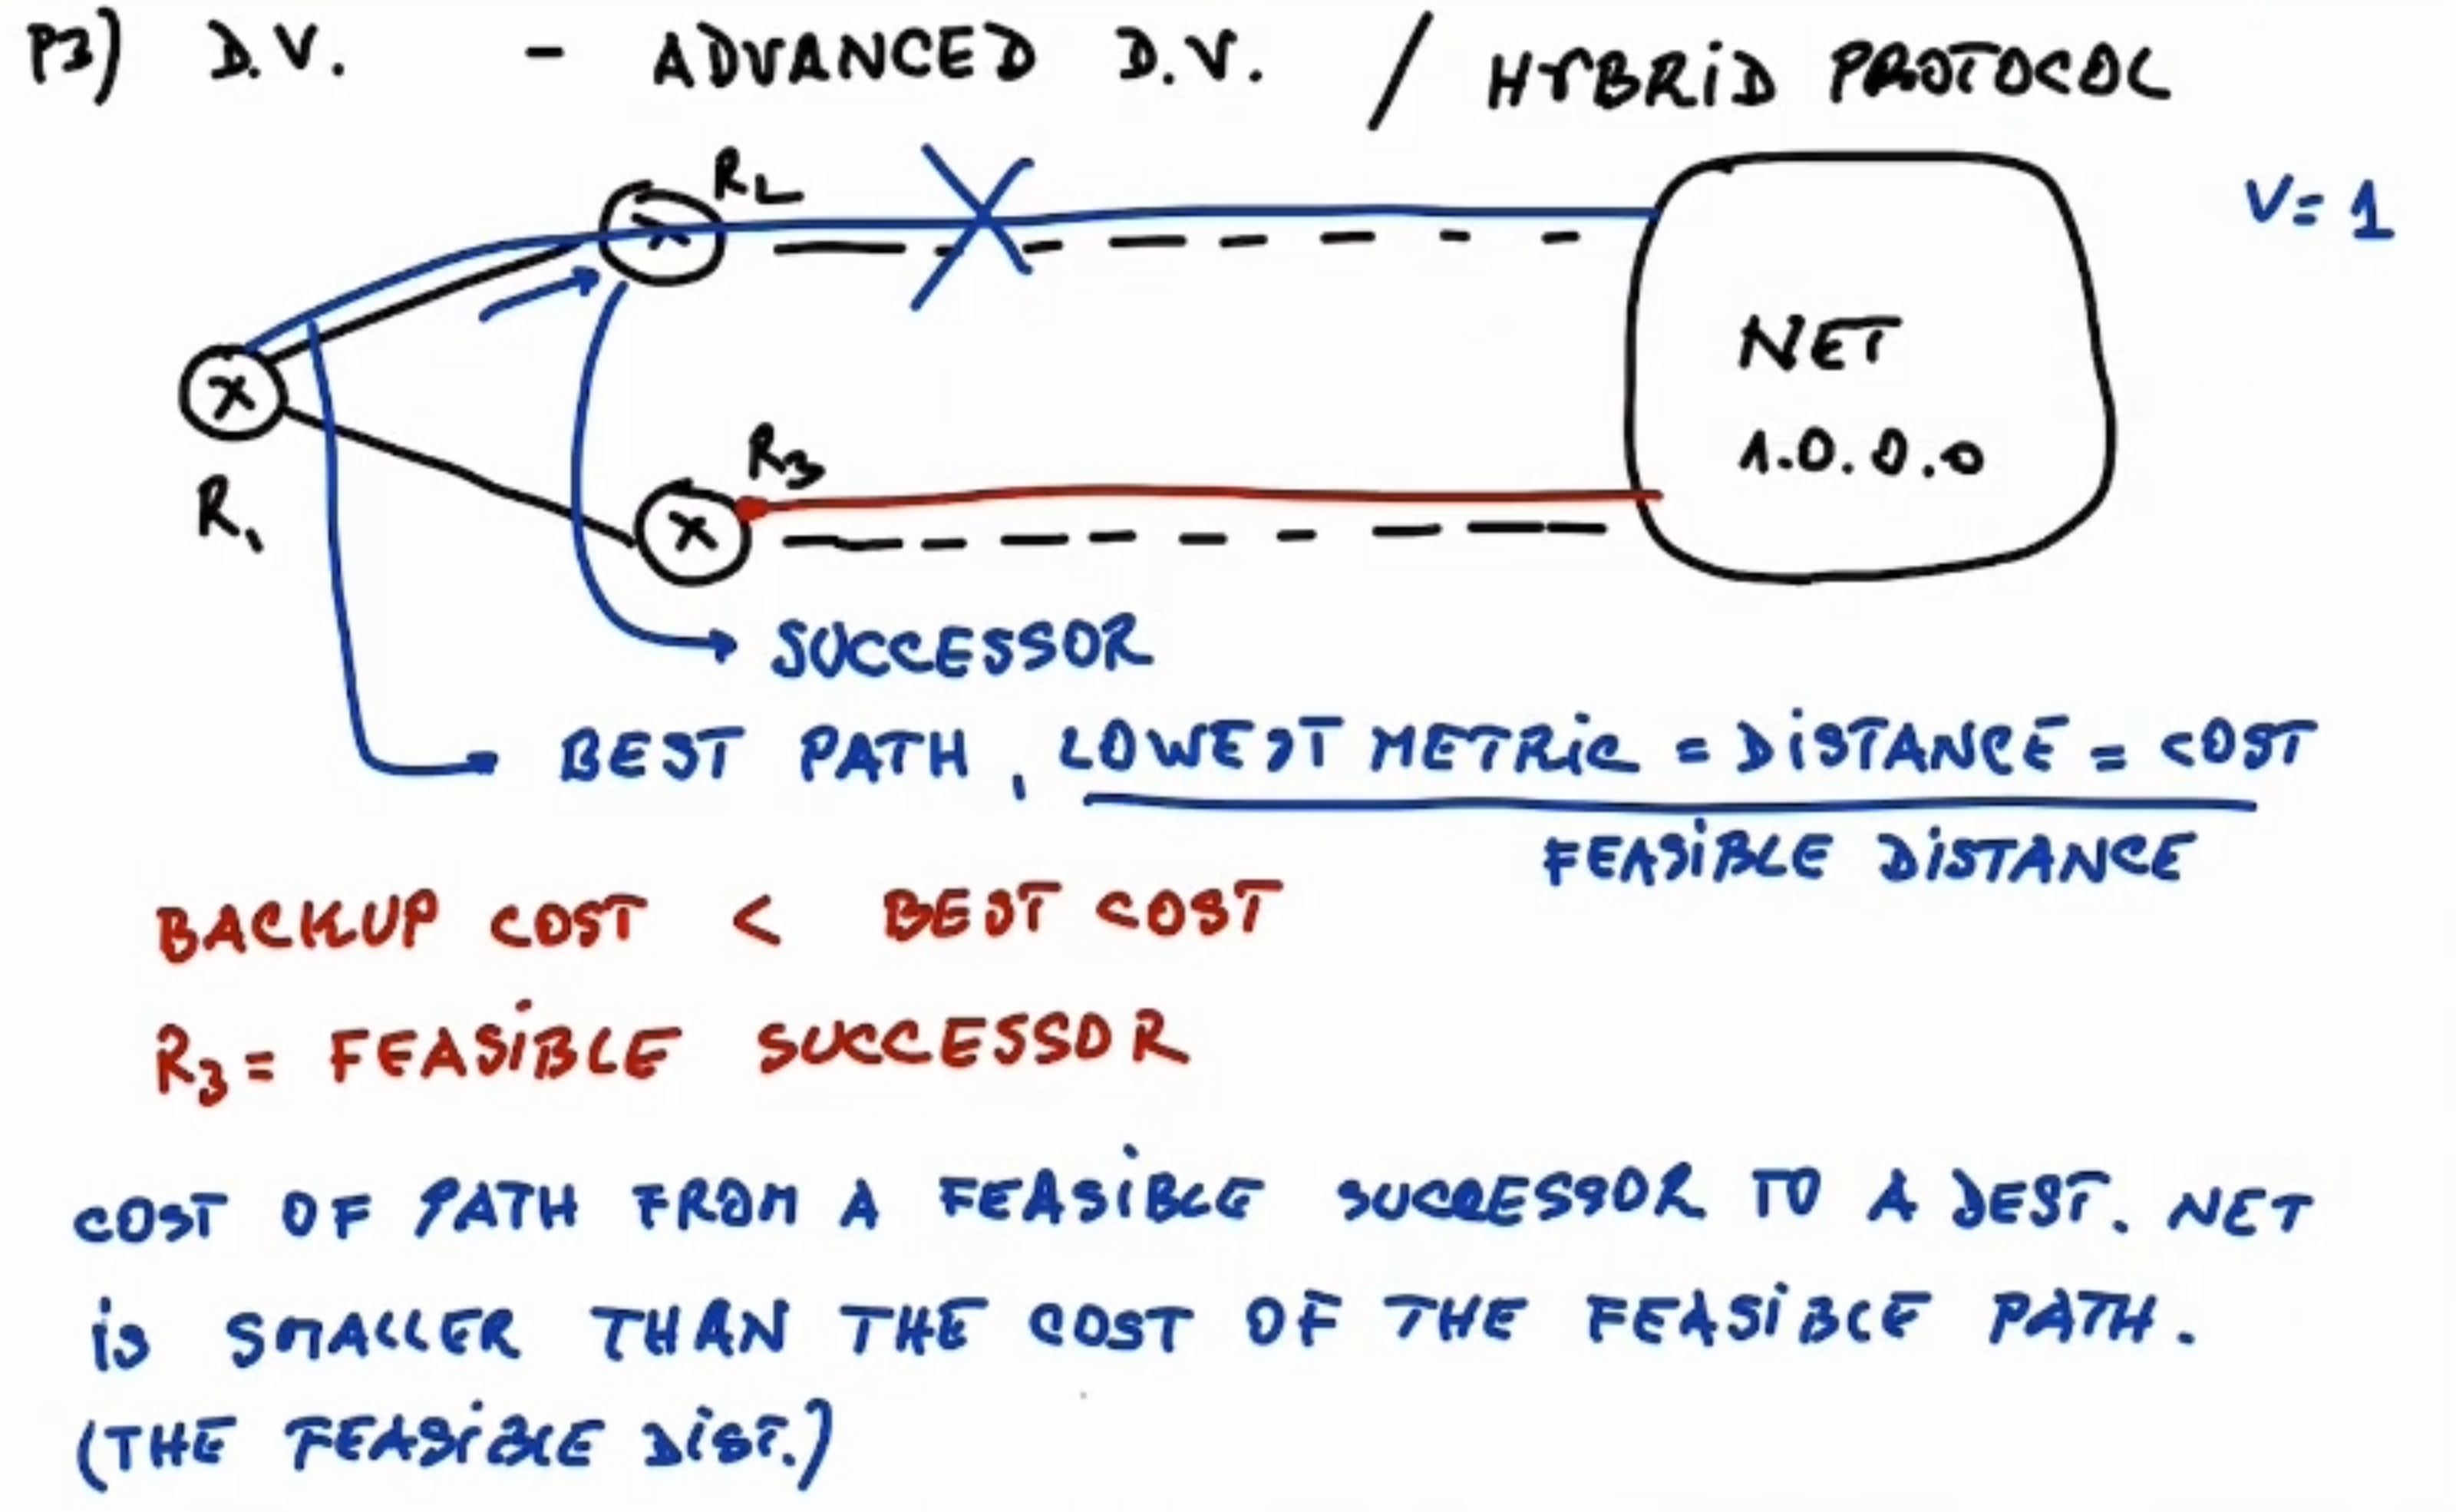 P3) D.V. - ADVANCED D.V. / HYBRID PROTOCOL
R2
V= 1
NET
1.0.0.0
R1
R3
SUCCESSOR
BEST PATH, LOWEST METRIC = DISTANCE = COST
FEASIBLE DISTANCE
BACKUP COST < BEST COST
R3 = FEASIBLE SUCCESSOR
COST OF PATH FROM A FEASIBLE SUCCESSOR TO A DEST. NET
iS SMALLER THAN THE COST OF THE FEASIBLE PATH.
(THE FEASIBLE DIST.)